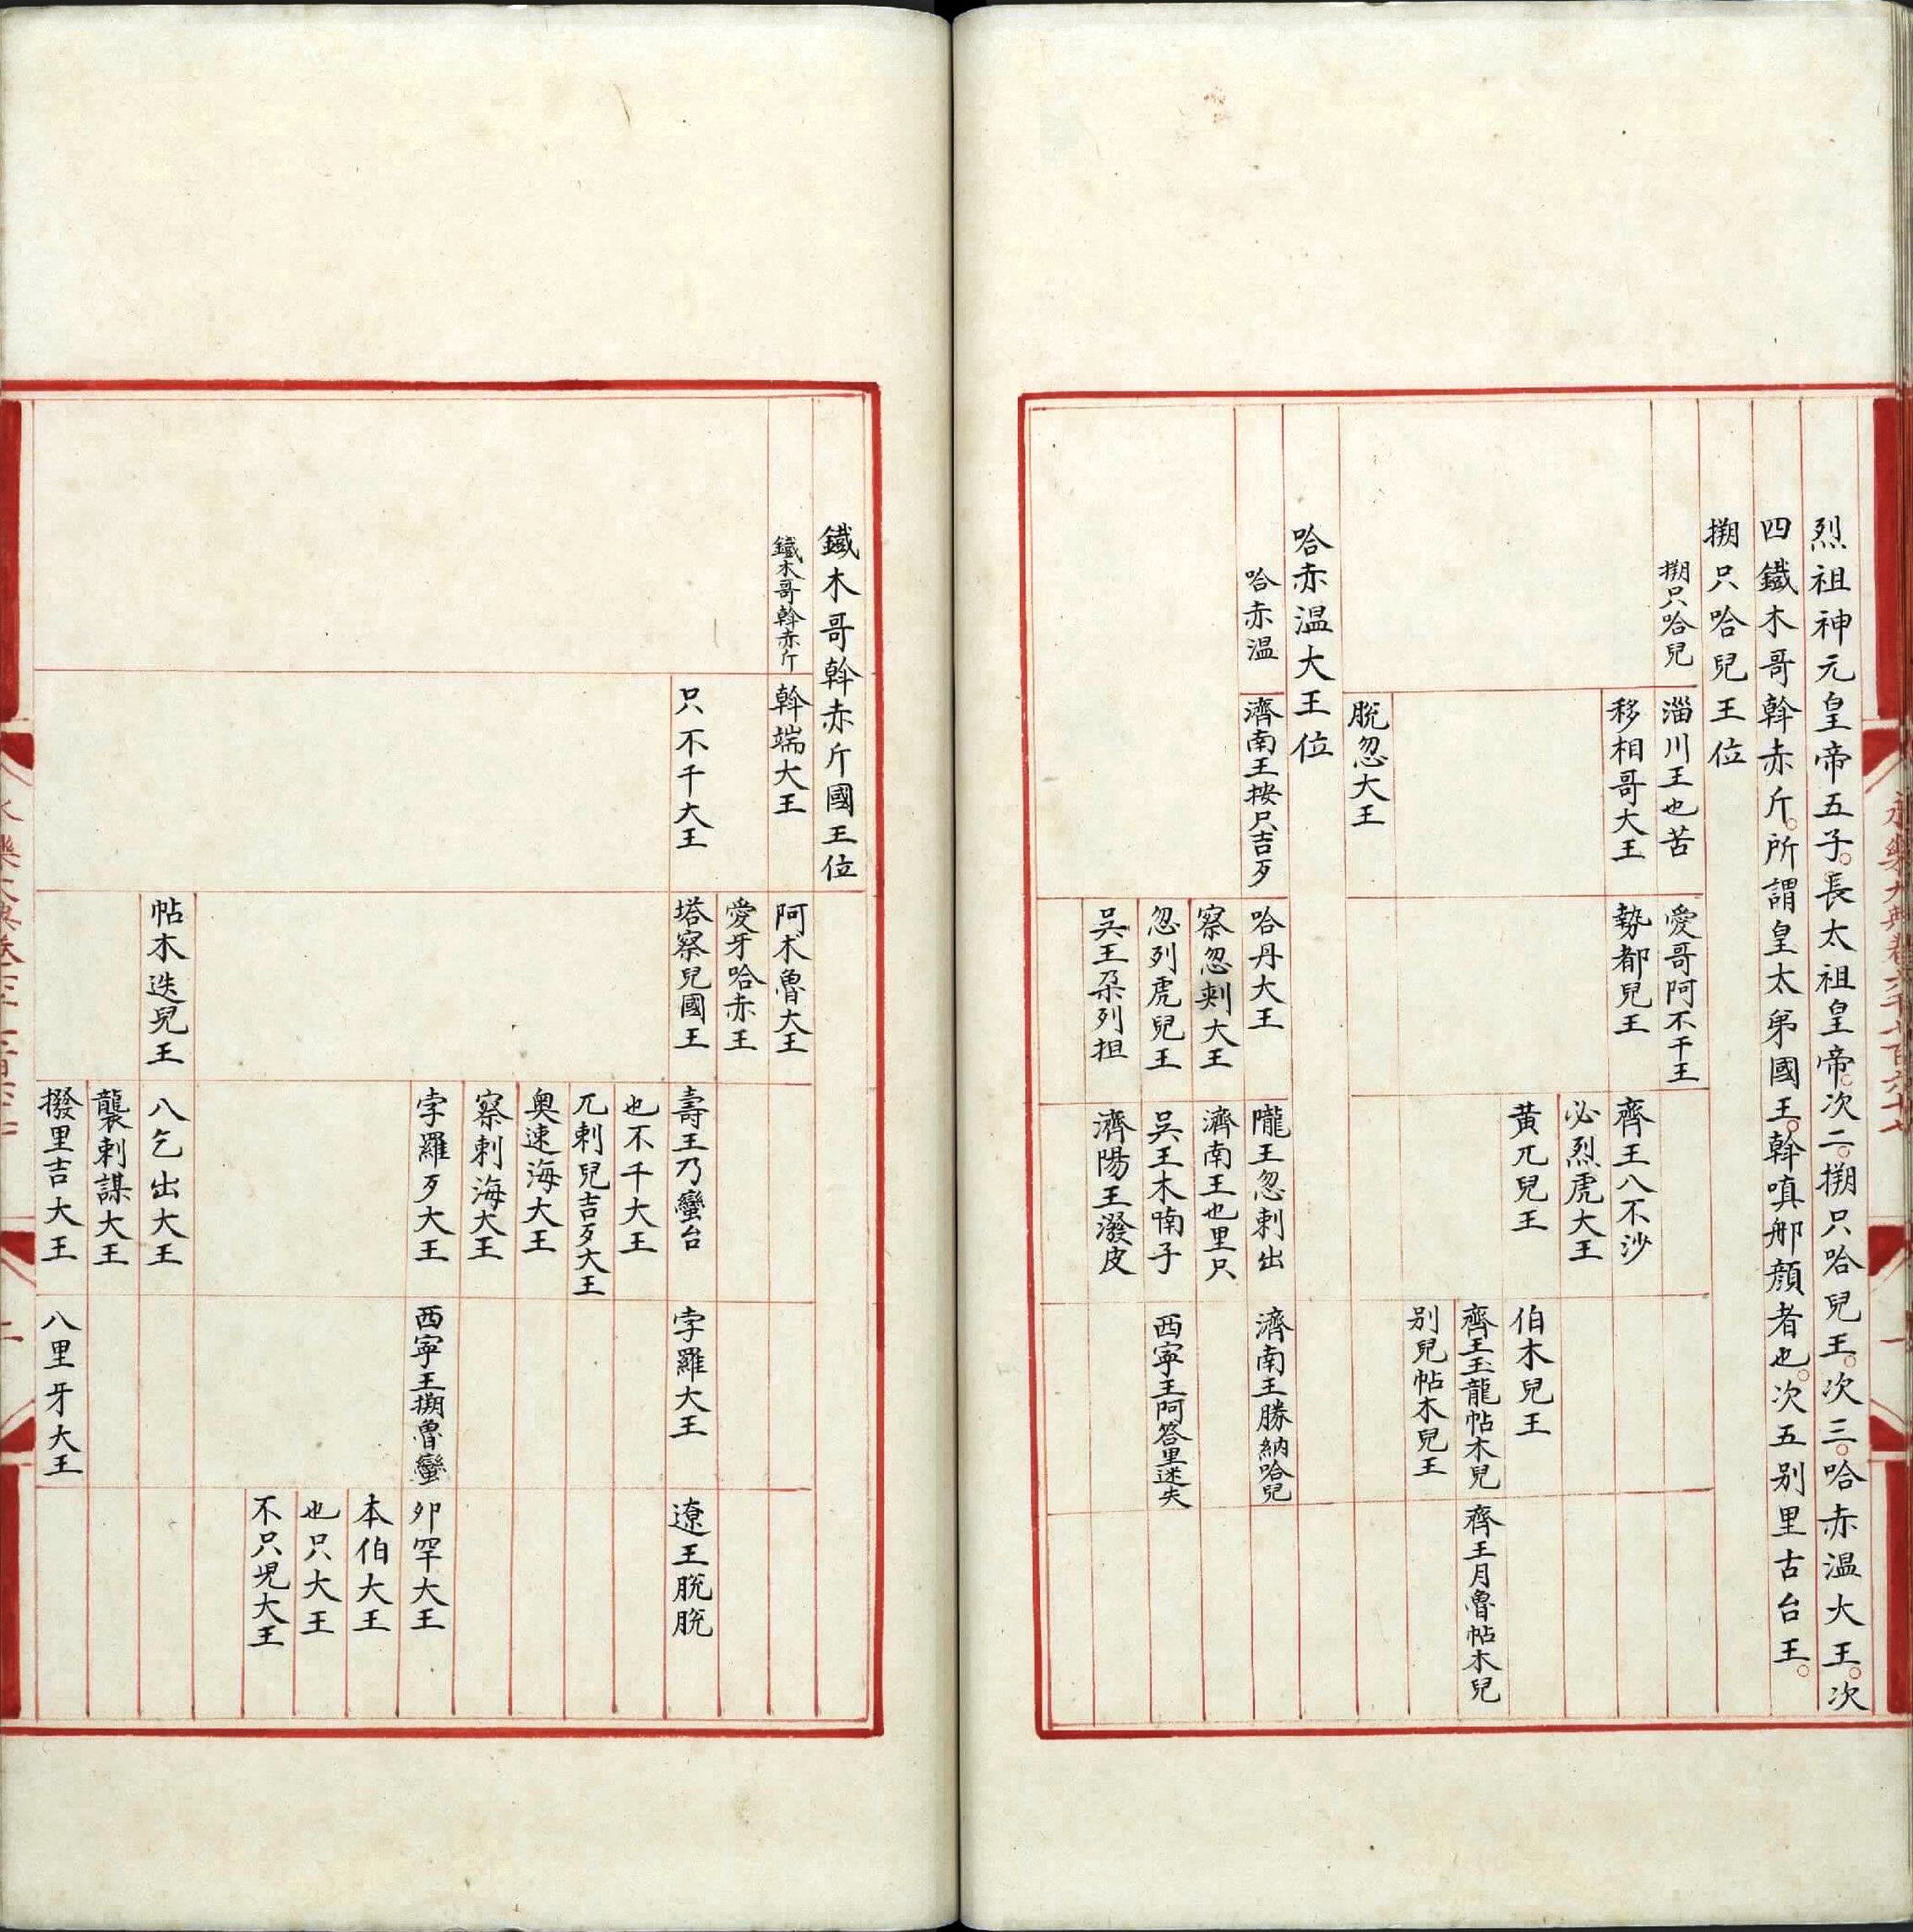 烈祖神元皇帝五子。長太祖皇帝。次二。搠只哈兒王。次三。哈赤温大王。次
四鐵木哥斡赤斤。所謂皇太弟國王。斡嗔那顔者也。次五别里古台王。
搠只哈兒王位
搠只哈兒
淄川王也苦
愛哥阿不干王
移相哥大王
勢都兒王
齊王八不沙
必烈虎大王
黄兀兒王
伯木兒王
齊王玉龍帖木兒
齊王月魯帖木兒
别兒帖木兒王
脫忽大王
哈赤温大王位
哈赤温
濟南王按只吉歹
哈丹大王
隴王忽剌出
濟南王勝納哈兒
察忽剌大王
濟南王也里只
忽列虎兒王
吳王木喃子
西寧王阿答里迷失
吳王朶列担
濟陽王潑皮
鐵木哥斡赤斤國王位
鐵木哥斡赤斤
斡端大王
阿术魯大王
愛牙哈赤王
只不干大王
塔察兒國王
壽王乃蠻台
孛羅大王
遼王脫脫
也不干大王
兀剌兒吉歹大王
奥速海大王
察剌海大王
孛羅歹大王
西寧王搠魯蠻
卯罕大王
本伯大王
也只大王
不只児大王
帖木迭兒王
八乞出大王
襲剌謀大王
撥里吉大王
八里牙大王